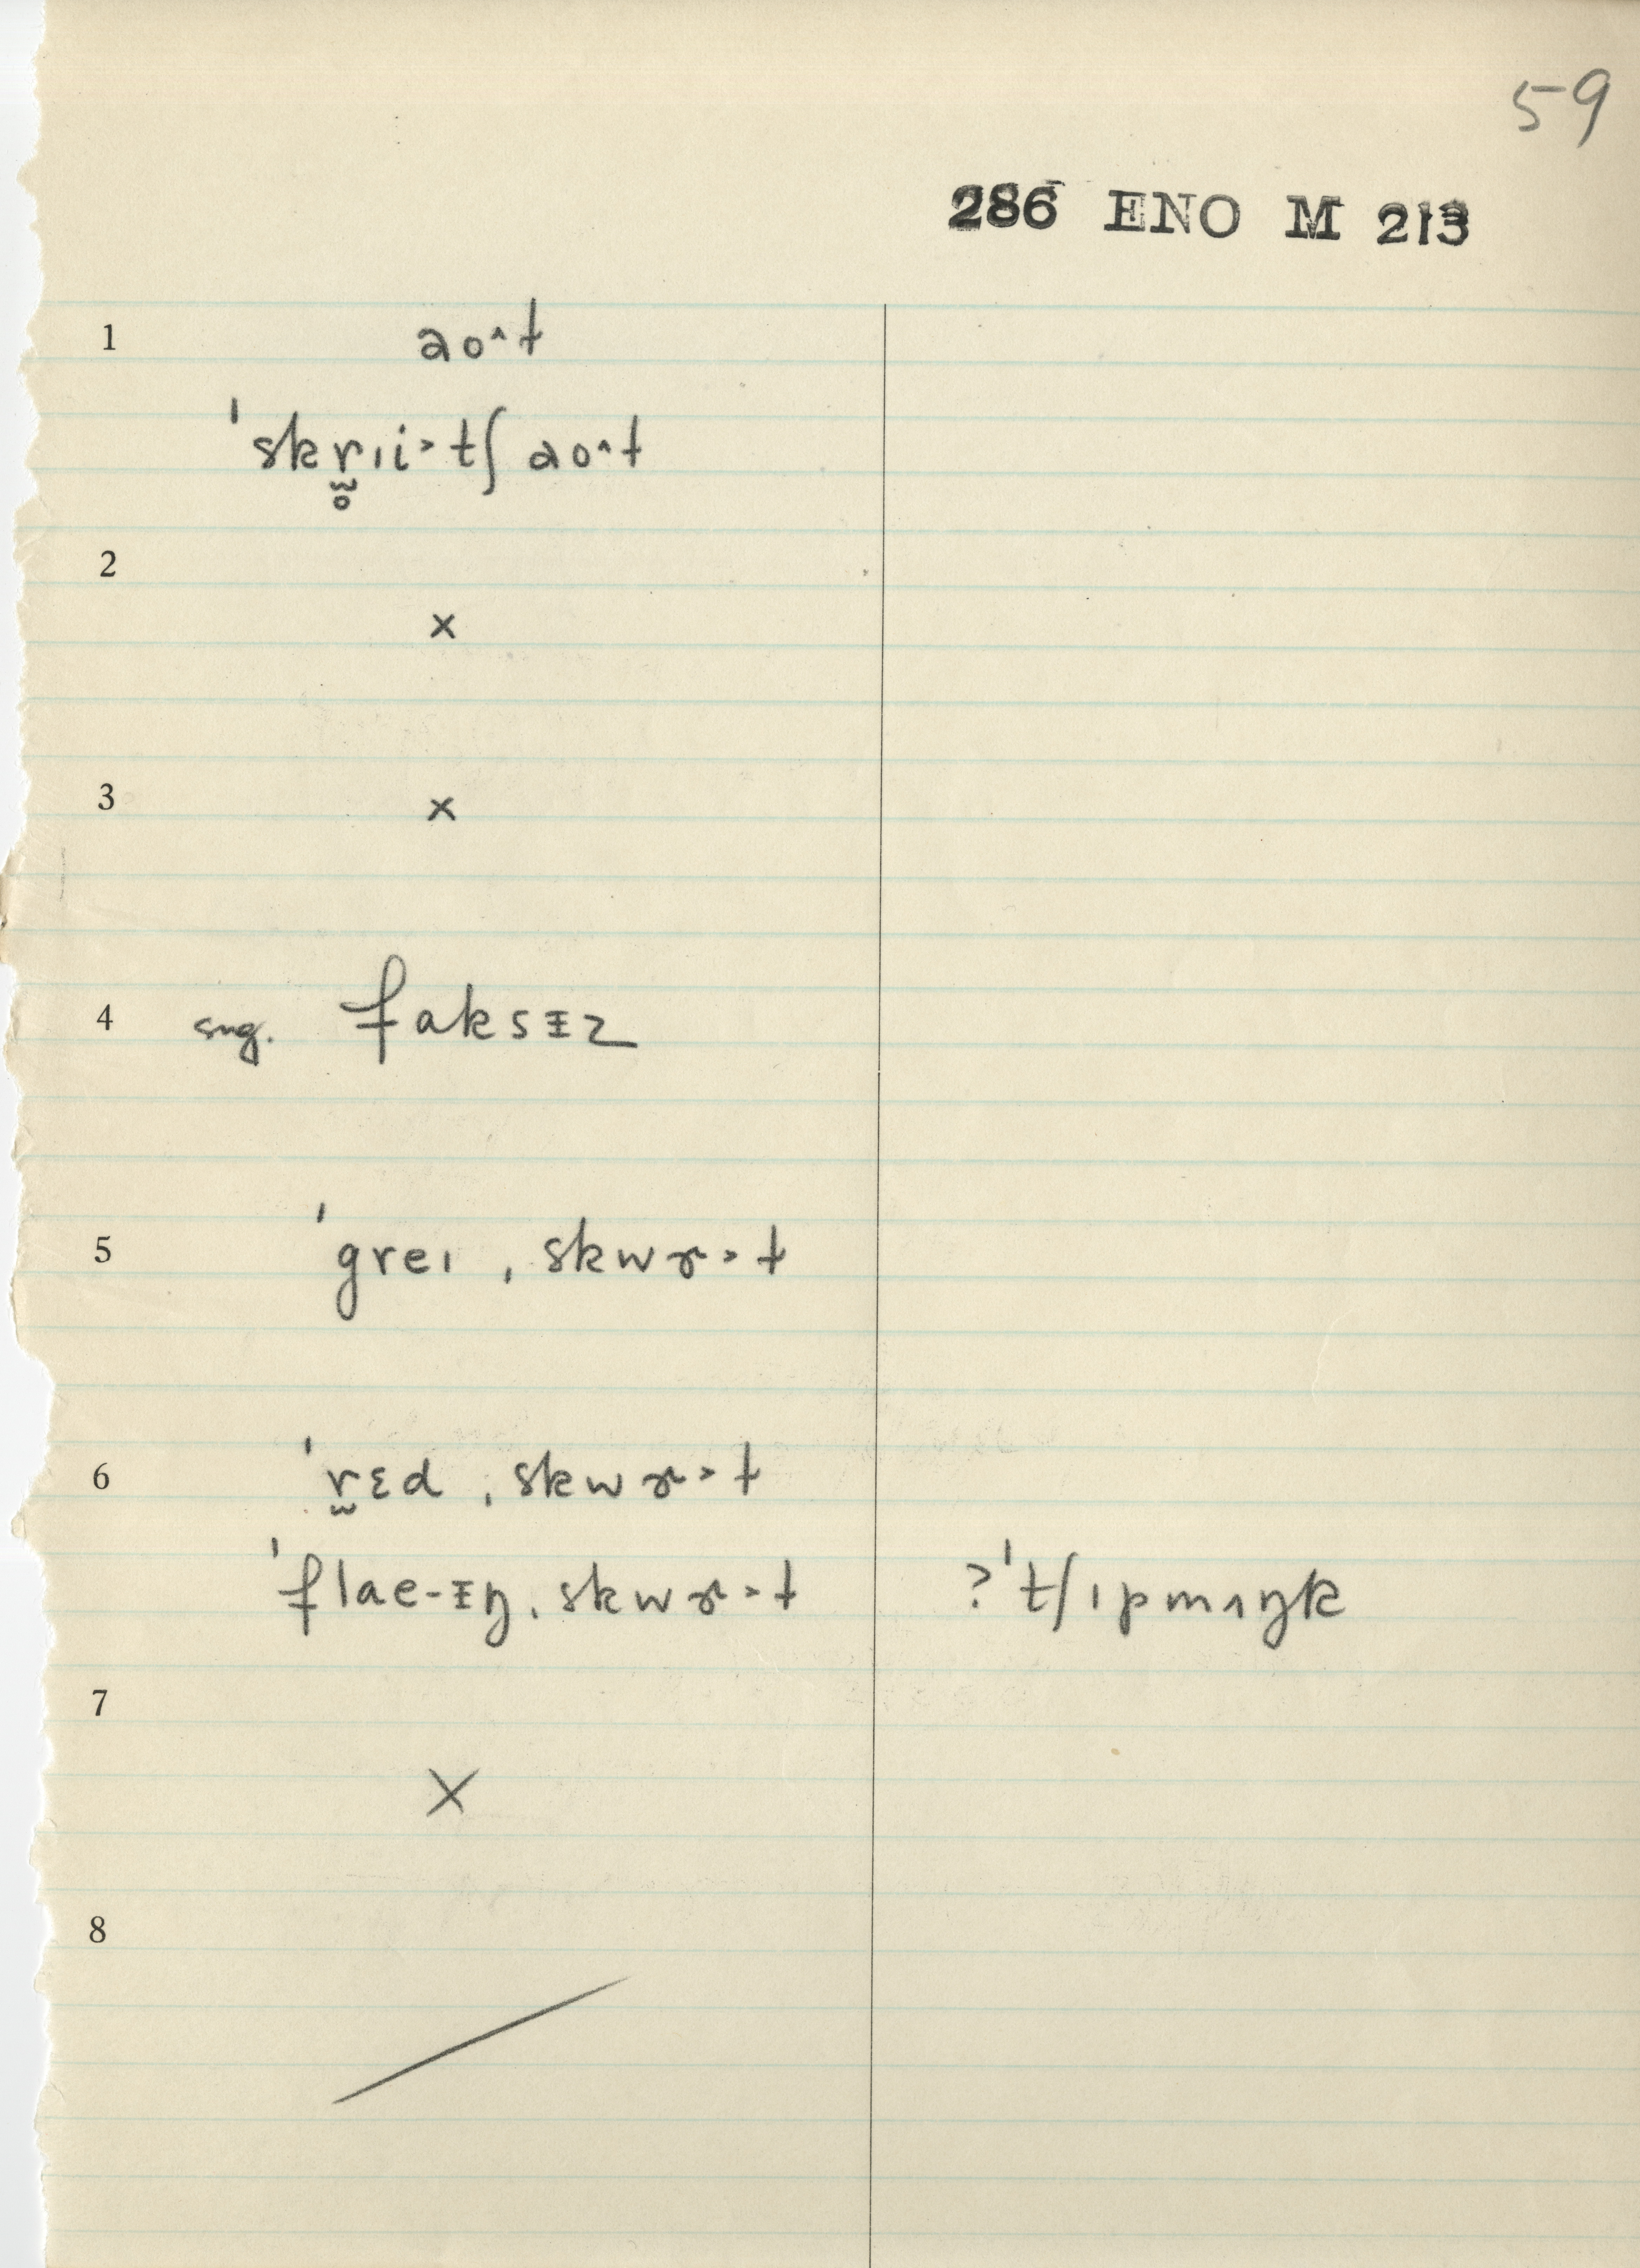 59
286 ENO M 213
1 ao˄t
ˈskr̥̃ɪi˃tʃ ao˄t
2
×
3 ×
4 sug. faksᵻz
5 ˈgreɪ ˌskwɚ˃t
6 ˈr̰ɛd ˌskwɚ˃t
ˈflae-ᵻŋ ˌskwɚ˃t ?ˈtʃɪpmʌŋk
7
×
8